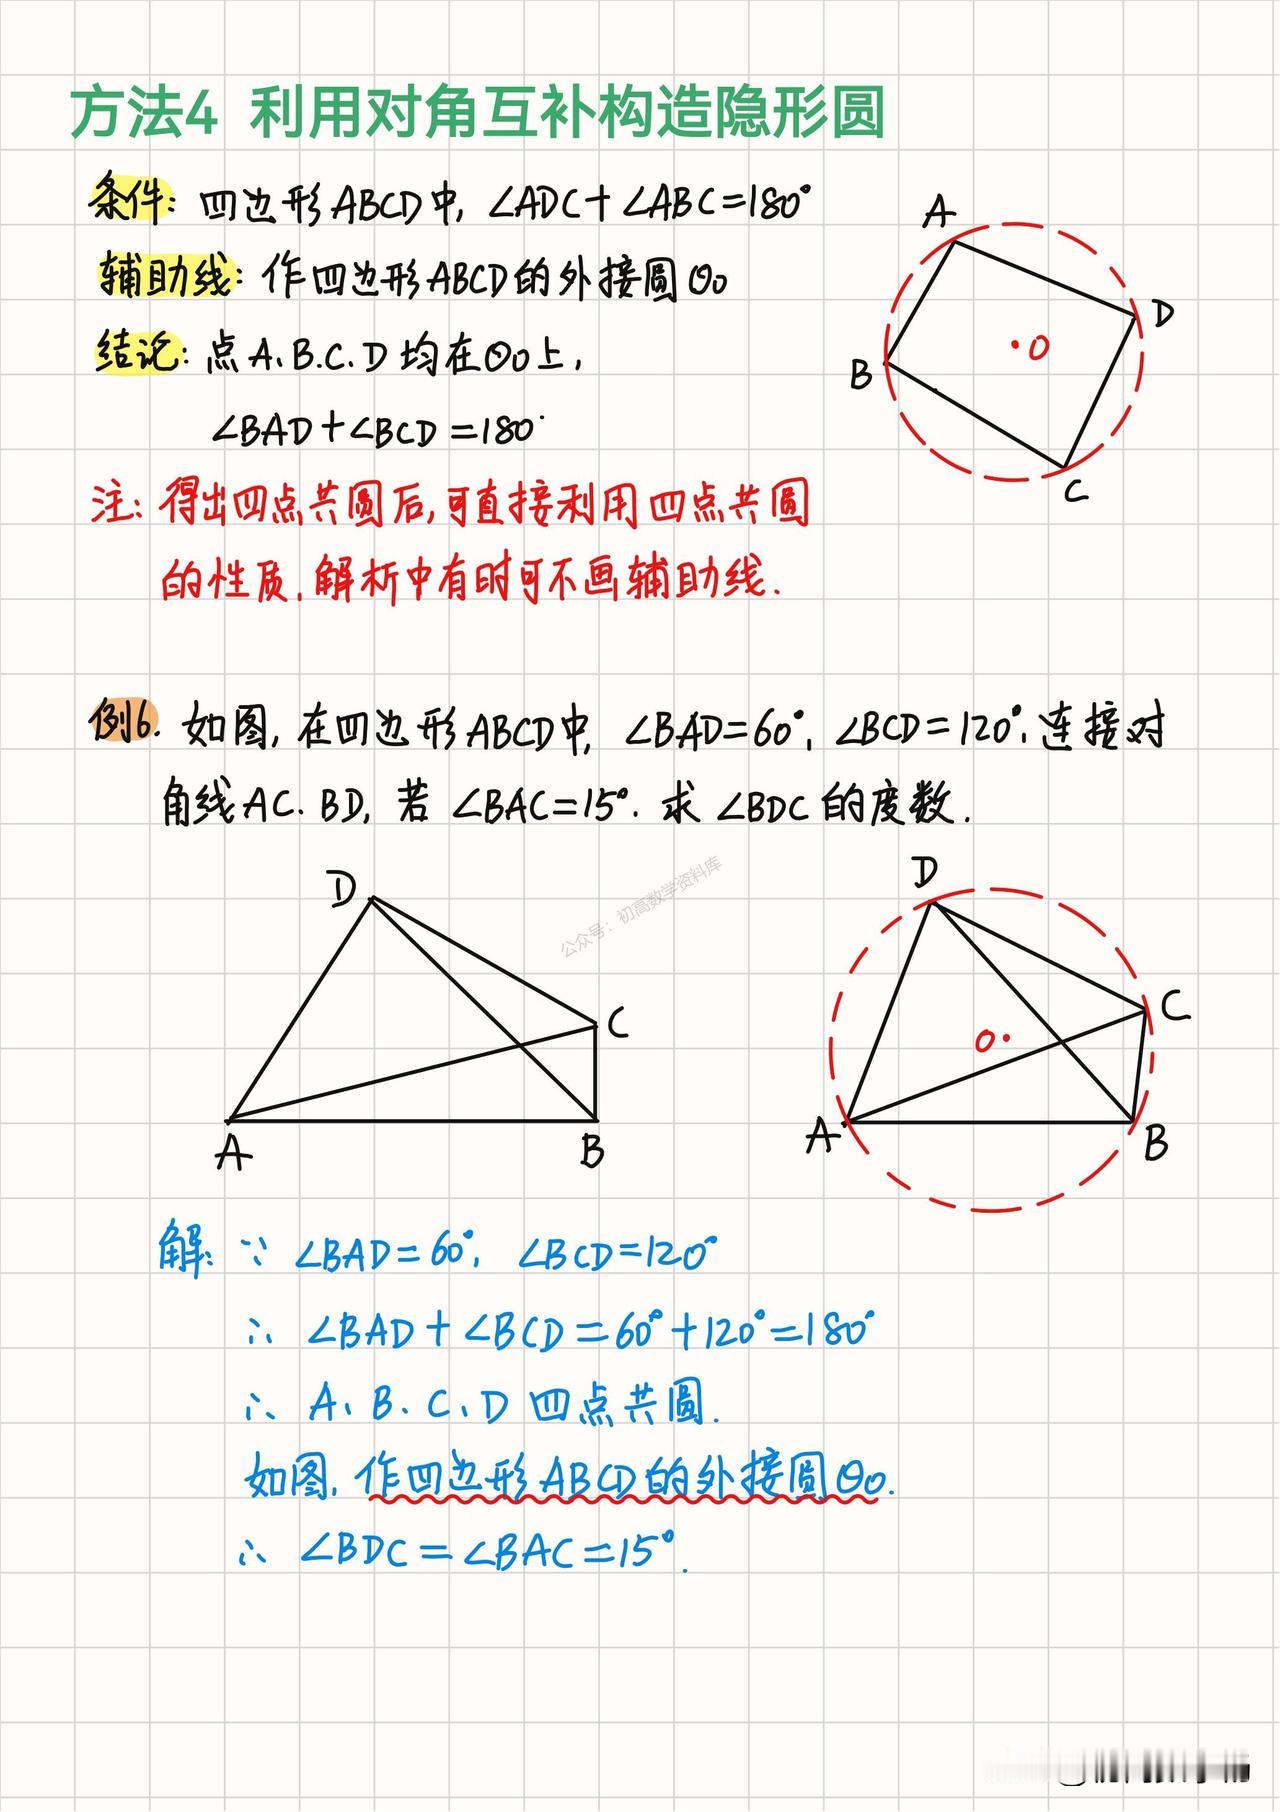 方法4 利用对角互补构造隐形圆
条件: 四边形ABCD中, ∠ADC+∠ABC=180°
辅助线: 作四边形ABCD的外接圆⊙O
结论: 点A、B、C、D均在⊙O上,
∠BAD+∠BCD=180°
注: 得出四点共圆后,可直接利用四点共圆
的性质,解析中有时可不画辅助线.
A
D
O
B
C
例6. 如图,在四边形ABCD中, ∠BAD=60°, ∠BCD=120°,连接对
角线AC、BD, 若∠BAC=15°. 求∠BDC的度数.
公众号：初高数学资料库
D
C
A
B
D
C
O
A
B
解: ∵ ∠BAD=60°, ∠BCD=120°
∴ ∠BAD+∠BCD=60°+120°=180°
∴ A、B、C、D四点共圆.
如图,作四边形ABCD的外接圆⊙O.
∴ ∠BDC=∠BAC=15°.